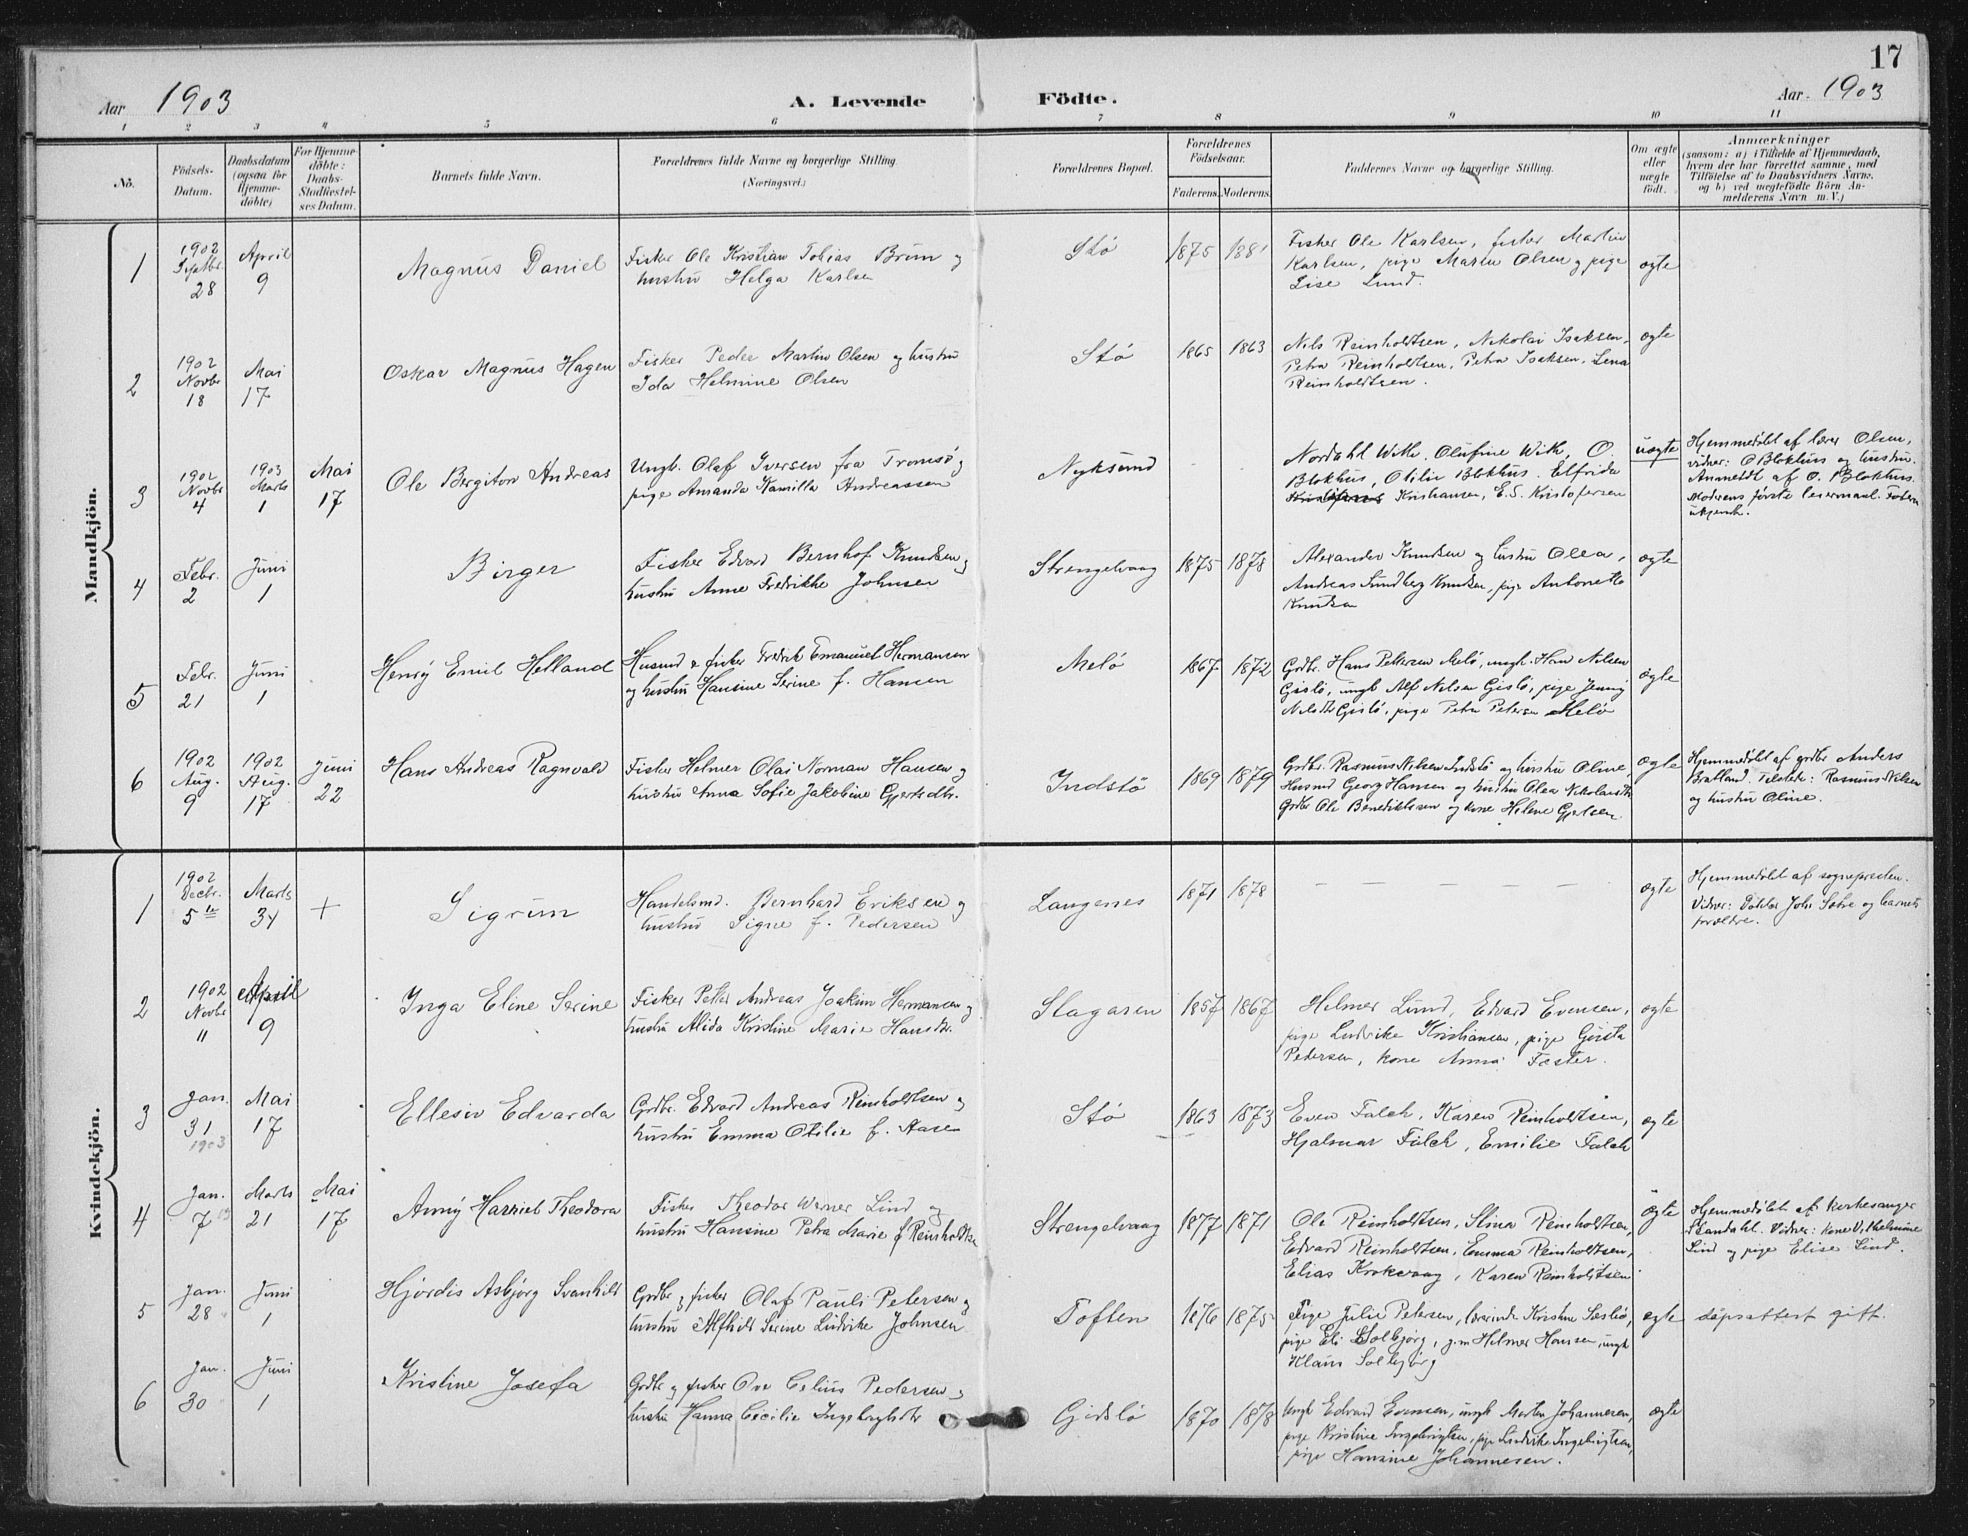 17
Aar 1903
A. Levende Födte.
Aar 1903
1 2 3 4 5 6 7 8 9 10 11
No.
Födsels-Datum.
Daabsdatum (ogsaa for Hjemmedöbte)
For Hjemmedöbte: Daabs-Stadfæstelses Datum.
Barnets fulde Navn.
Forældrenes fulde Navne og borgerlige Stilling.
(Næringsvei.)
Forældrenes Bopæl.
Forældrenes Födselsaar.
Faderens. Moderens.
Faddernes Navne og borgerlige Stilling.
Om ægte eller uægte födt.
Anmærkninger
(saasom: a) i Tilfælde af Hjemmedaab,
hvem der har forrettet samme, med
Tilföielse af to Daabsvidners Navne,
og b) ved uægtefödte Börn An-
melderens Navn m. V.)
Mandkjön.
1
1902 Septbr. 28
April 9
Magnus Daniel
Fisker Ole Kristian Tobias Brun og
hustru Helga Karlsen
Stø
1875 1881
Fisker Ole Karlsen, fisker Martin
Karlsen, pige Maren Olsen og pige
Lise Lund.
ægte
2
1902 Novbr 18
Mai 17
Oskar Magnus Hagen
Fisker Peder Martin Olsen og hustru
Ida Helmine Olsen
Stø
1865 1863
Nils Reinholdtsen, Nikolai Isaksen,
Petra Reinholdtsen, Petra Isaksen, Lena
Reinholdtsen.
ægte
3
1902 Novbr 4
1903 Marts 1
Mai 17
Ole Bergiton Andreas
Ungk. Olaf Iversen fra Tromsø og
pige Amanda Kamilla Andreassen
Nyksund
Nordahl Wik, Olufine Wik, O.
Blokhus, Otilie Blokhus. Elfrida
Kristiansen, E.S. Kristofersen
uægte
Hjemmedøbt af lærer Olsen,
vidner: O Blokhus og hustru.
Anmeldt af O. Blokhus.
Moderens første leiermaal. Faderen
ukjendt.
4
Febr. 2
Juni 1
Birger
Fisker Edvard Bernhof Knudsen og
hustru Anne Fredrikke Johnsen
Strengelvaag
1875 1878
Alexander Knudsen og hustru Olea,
Andreas Lundberg Knudsen, pige Antonette
Knudsen
ægte
5
Febr. 21
Juni 1
Henry Emil Helland
Husmd & fisker Fredrik Emanuel Hermansen
og hustru Hansine Serine f. Hansen
Melø
1867 1872
Grdbr. Hans Pettersen Melø, ungk. Hans Nilsen
Gislø, ungk Alf Nilsen Gislø, pige Jenny
Nilsdtr Gislø, pige Petra Petersen Melø
ægte
6
1902 Aug. 9
1902 Aug. 17
Juni 22
Hans Andreas Ragnvald
Fisker Helmer Olai Norman Hansen og
hustru Anna Sofie Jakobine Gjertsdtr.
Indstø
1869 1879
Grdbr. Rasmus Nilsen Indstø og hustru Oline,
Husmd Georg Hansen og hustru Olea Nikolaisdtr
Grdbr Ole Benediktsen og kone Helene Gjertsen
ægte
Hjemmedøbt af grdbr Anders
Bratland. Tilstede: Rasmus Nilsen
og hustru Oline.
Kvindekjön.
1
1902 Decbr. 5te
Marts 34
+
Sigrun
Handelsmd. Bernhard Eriksen og
hustru Signe f. Pedersen
Langenes
1871 1878
— — — — — —
ægte
Hjemmedøbt af sognepresten.
Vidner: Doktor Johs Sætre og barnets
forældre.
2
1902 Novbr 11
April 9
Inga Eline Serine
Fisker Peter Andreas Joakim Hermansen og
hustru Alida Kristine Marie Hansdtr.
Stagaren
1857 1867
Helmer Lund, Edvard Evensen,
pige Ludvike Kristiansen, pige Gusta
Pedersen, kone Anna Fæster.
ægte
3
Jan. 31 1903
Mai 17
Ellesiv Edvarda
Grdbr. Edvard Andreas Reinholdtsen og
hustru Emma Otilie f. Aasen
Stø
1863 1873
Even Falch, Karen Reinholdtsen,
Hjalmar Falch, Emilie Falch
ægte
4
Jan. 7 03
Marts 21
Mai 17
Anny Harriet Theodora
Fisker Theodor Werner Lind og
hustru Hansine Petra Marie f Reinholdtsen
Strengelvaag
1877 1871
Ole Reinholdtsen, Stina Reinholdtsen,
Edvard Reinholdtsen, Emma Reinholdtsen,
Elias Krokvaag, Karen Reinholdtsen
ægte
Hjemmedøbt af kirkesanger
Standahl. Vidner: kone Vilhelmine
Lind og pige Elise Lind.
5
Jan. 28
Juni 1
Hjørdis Asbjørg Svanhild
Grdbr og fisker Olaf Pauli Petersen og
hustru Alfhild Serine Ludvike Johnsen
Toften
1876 1875
Pige Julie Petersen, lærerinde Kristine Sæslø,
pige Eli Solbjørg, g.m Helmer Hansen, ungk
Klaus Solbjørg
ægte
døpsattest gitt.
6
Jan. 30
Juni 1
Kristine Josefa
Grdbr og fisker Ove Celius Pedersen og
hustru Hanna Cecilie Ingebrigtsdtr
Gidslø
1870 1878
Ungk Edvard Evensen, ungk Martin Johannesen,
pige Kristine Ingebrigtsen, pige Ludvike Ingebrigtsen,
pige Hansine Johannesen.
ægte